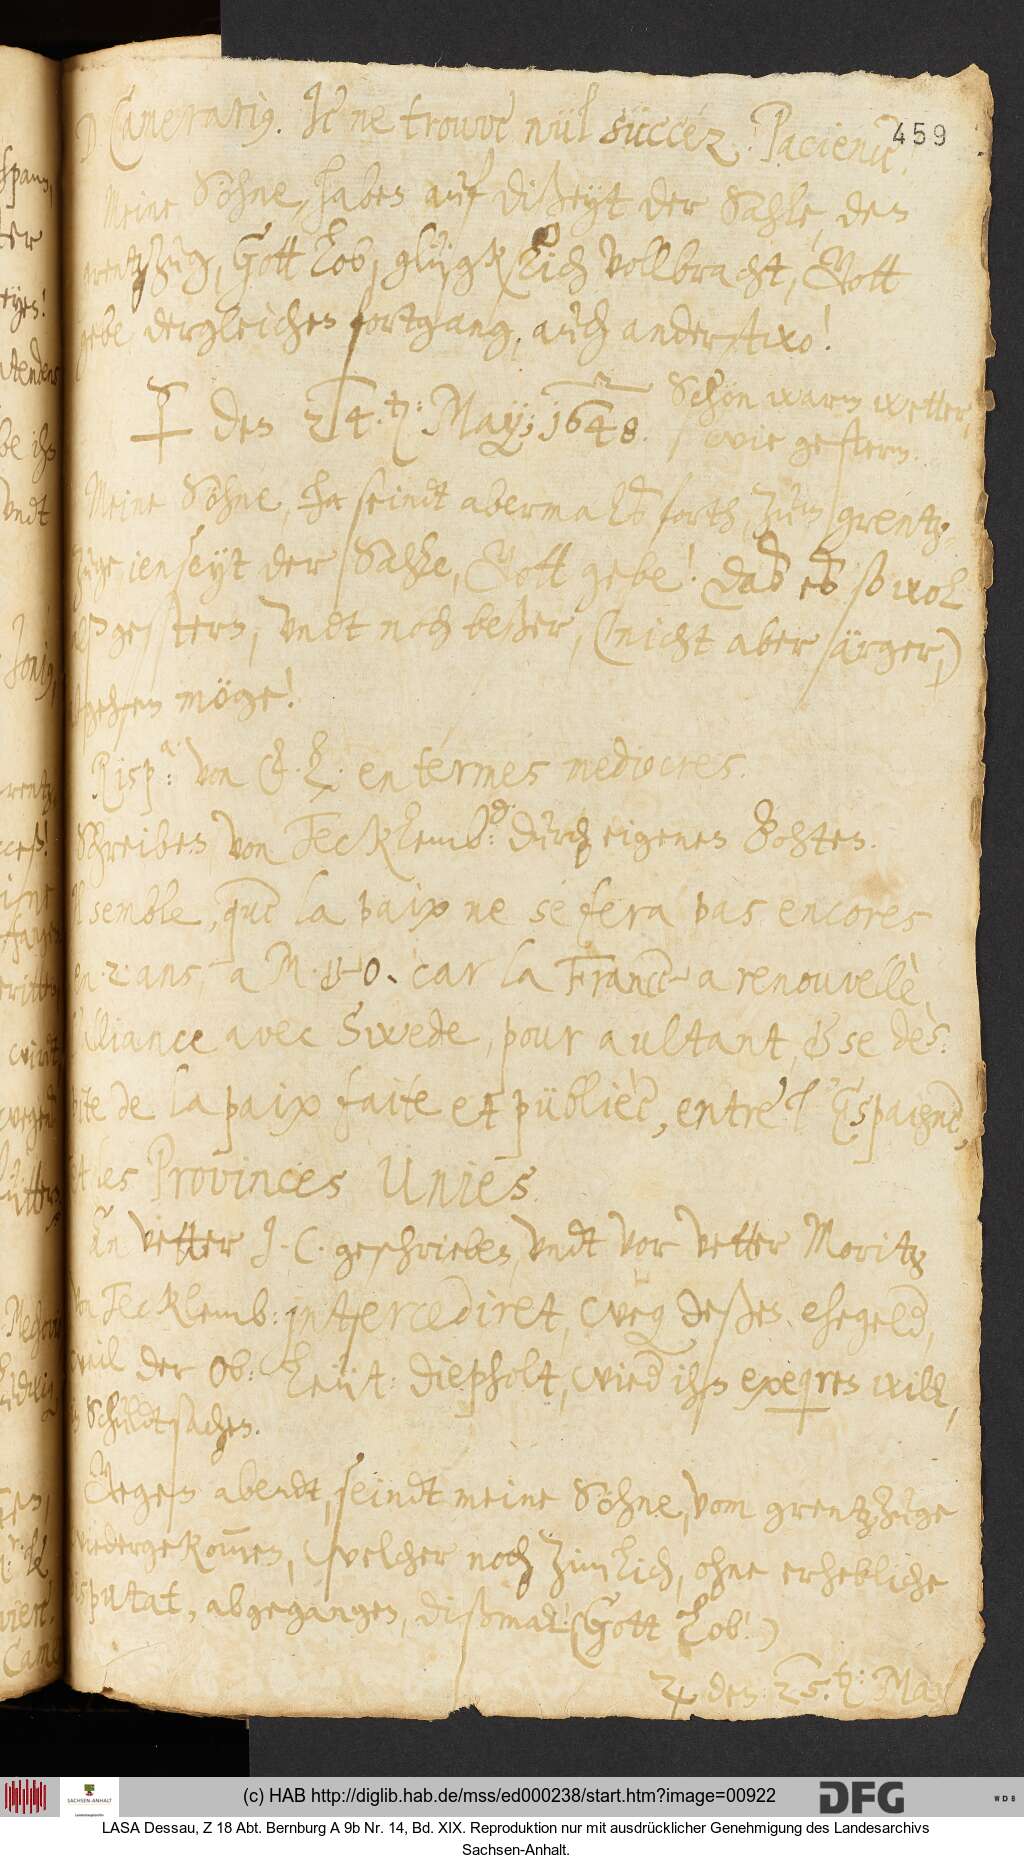 D Camerarius. Je ne trouve nül süccéz. Pacience. 459
Meine Söhne, haben auf dißeyt der Sahle, den
grentzZug, Gott Lob, glügklich vollbracht, Gott
gebe dergleichen fortgang, auch anderstwo!
☿ den 24.ten: May; 1648. Schön warm wetter,
wie gestern.
Meine Söhne, seindt abermalß forth, zum grentz-
Zuge ienseyt der Sahle, Gott gebe! daß eß so wol
alß gestern, undt noch beßer, (nicht aber ärger,)
gehen möge!
Risp.a: von en términes mediocres.
Schreiben von Tecklemb.g: durch eigenen Bohten.
Il semble, que la paix ne se fera pas encores
en 2 ans, a M. & O. car la France a renouvellè,
l'alliance avec Swede, pour aultant, & se dès-
pite de la paix faite et püblièe, entre l'Espaigne,
et les Provinces Unies.
An Vetter J. C. geschrieben, undt vor Vetter Moritz
von Tecklemb: intercediret, weg: deßen ehegeld,
weil der Ob: Leüt: Diepholt, wied ihn exequiren will,
in Schuldtsachen.
Gegen abendt, seindt meine Söhne, vom grentzZuge
wiedergekommen, welcher noch zimlich, ohne erhebliche
disputat, abgegangen, dißmal! (Gott Lob!)
♃ den: 25.ten: May
(c) HAB http://diglib.hab.de/mss/ed000238/start.htm?image=00922
DFG
WDB
SACHSEN-ANHALT
LASA Dessau, Z 18 Abt. Bernburg A 9b Nr. 14, Bd. XIX. Reproduktion nur mit ausdrücklicher Genehmigung des Landesarchivs
Sachsen-Anhalt.